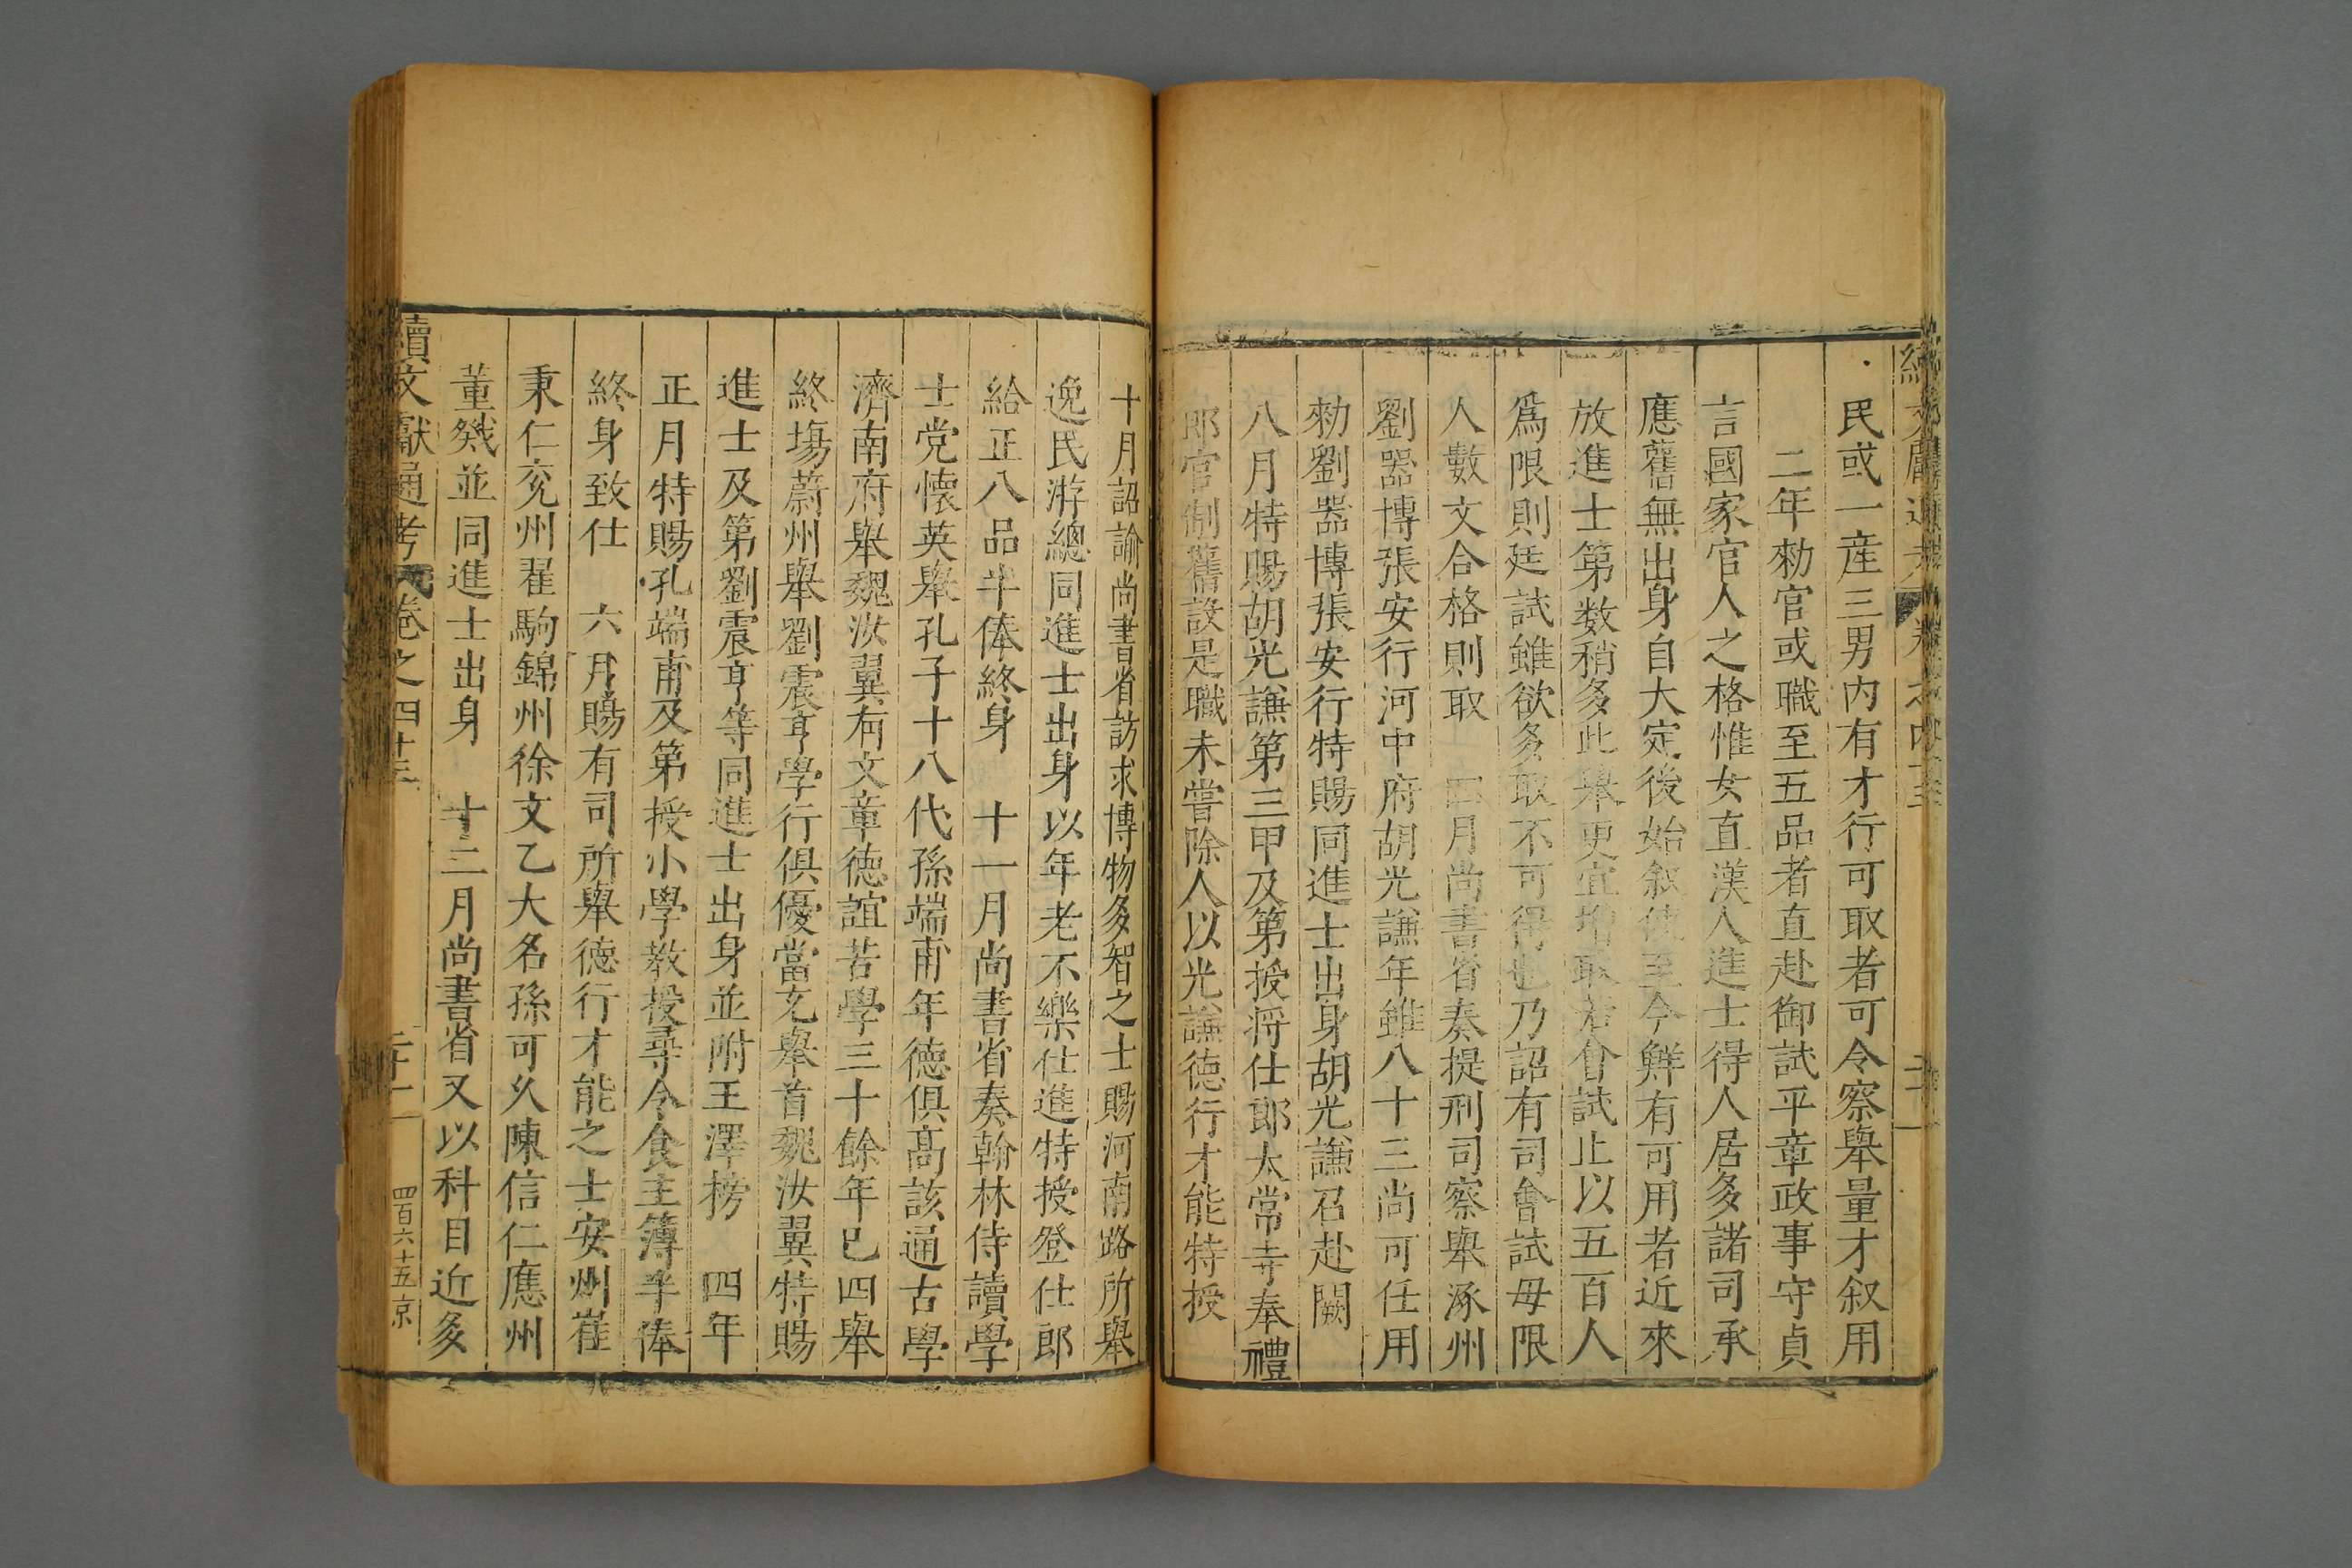 民或一産三男内有才行可取者可令察舉量才叙用
二年勑官或職至五品者直赴御試平章政事守貞
言國家官人之格惟女直漢人進士得人居多諸司承
應舊無出身自大定後始叙使至今鮮有可用者近來
放進士第数稍多此舉更宜增取若會試止以五百人
爲限則廷試雖欲多取不可得也乃詔有司會試毋限
人數文合格則取 四月尚書省奏提刑司察舉涿州
劉器博張安行河中府胡光謙年雖八十三尚可任用
勑劉器博張安行特賜同進士出身胡光謙召赴闕
八月特賜胡光謙第三甲及第授将仕郎太常寺奉禮
郎官制舊設是職未嘗除人以光謙德行才能特授
十月詔諭尚書省訪求博物多智之士賜河南路所舉
逸民游總同進士出身以年老不樂仕進特授登仕郎
給正八品半俸終身 十一月尚書省奏翰林侍讀學
士党懐英舉孔子十八代孫端甫年德俱髙該通古學
濟南府舉魏汝翼有文章德誼苦學三十餘年已四舉
終塲蔚州舉劉震亨學行俱優當充舉首魏汝翼特賜
進士及第劉震亨等同進士出身並附王澤榜 四年
正月特賜孔端甫及第授小學教授尋令食主簿半俸
終身致仕 六月賜有司所舉德行才能之士安州崔
秉仁兖州翟駒錦州徐文乙大名孫可久陳信仁應州
董戣並同進士出身 十二月尚書省又以科目近多
續文獻通考 卷之四十三 四百六十五 京